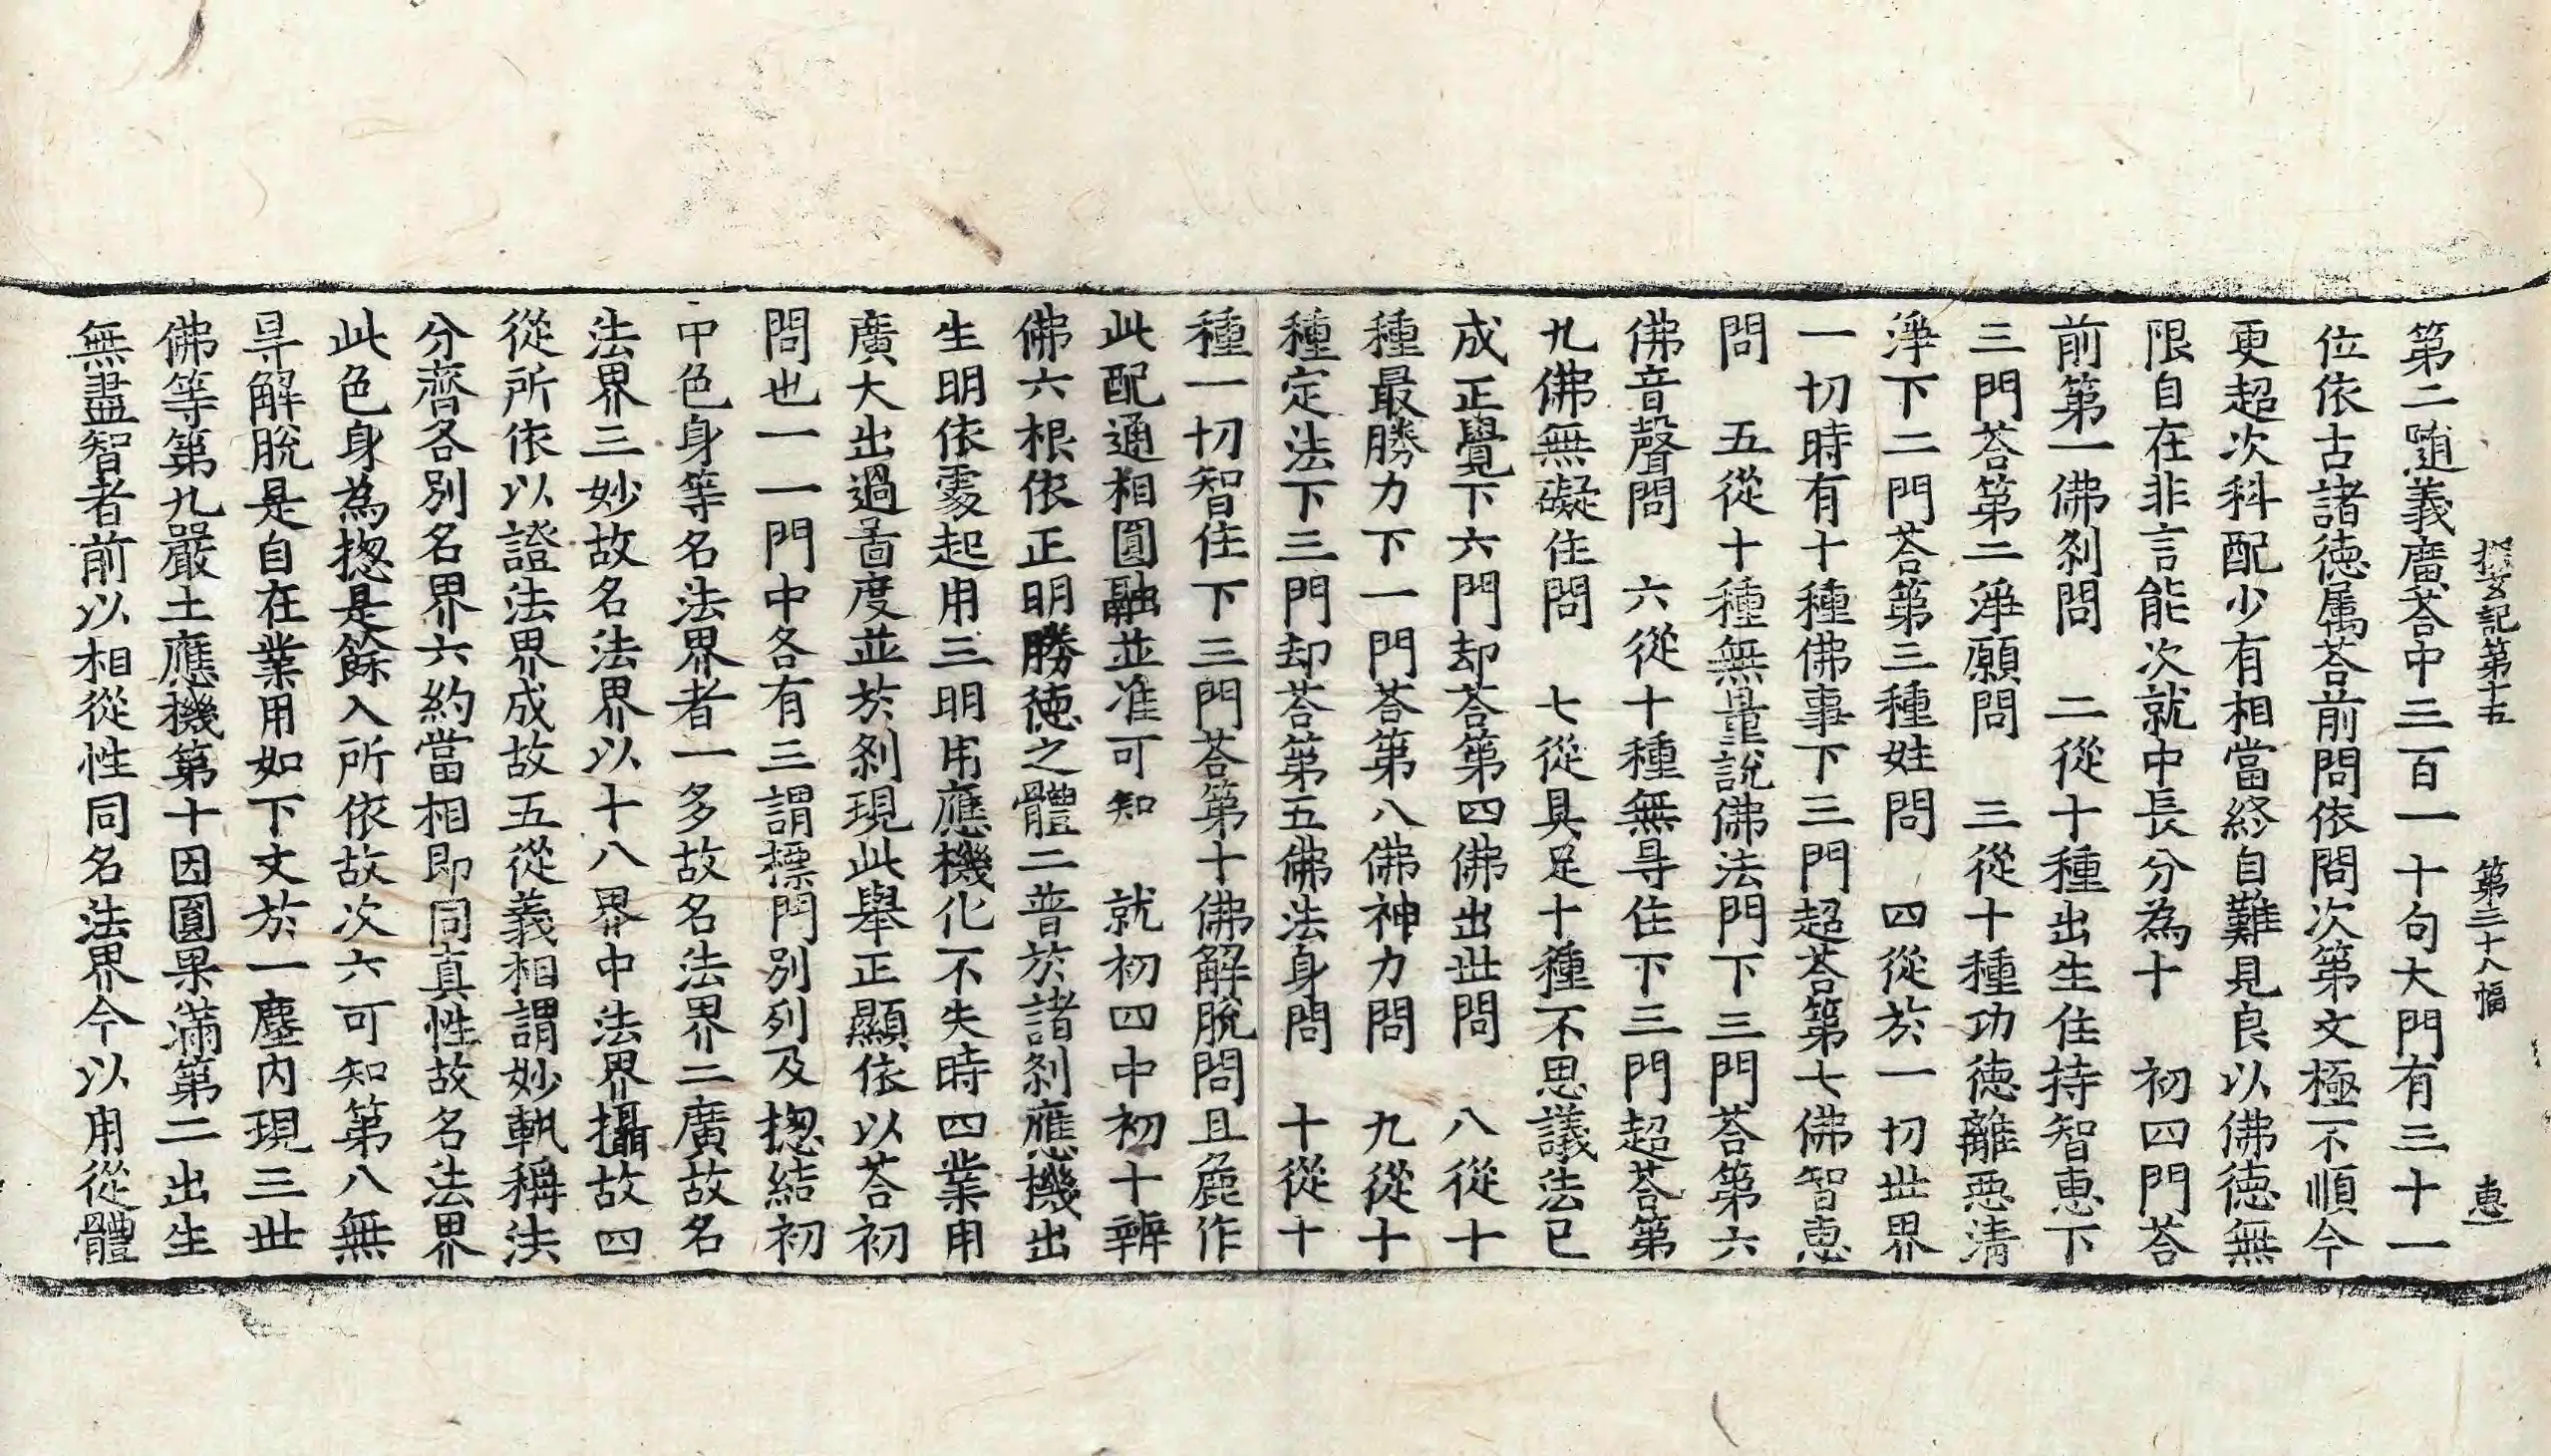 探玄記第十五 第三十八幅 惠
第二隨義廣荅中三百一十句大門有三十一
位依古諸徳属荅前問依問次第文極不順今
更超次科配少有相當終自難見良以佛徳無
限自在非言能次就中長分為十 初四門荅
前第一佛刹問 二從十種出生住持智恵下
三門荅第二淨願問 三從十種功徳離惡清
淨下二門荅第三種姓問 四從於一切世界
一切時有十種佛事下三門超荅第七佛智恵
問 五從十種無量說佛法門下三門荅第六
佛音聲問 六從十種無㝵住下三門超荅第
九佛無礙住問 七從具足十種不思議法已
成正覺下六門却荅第四佛出世問 八從十
種最勝力下一門荅第八佛神力問 九從十
種定法下三門却荅第五佛法身問 十從十
種一切智住下三門荅第十佛解脫問且麁作
此配通相圓融並准可知 就初四中初十辨
佛六根依正明勝徳之體二普於諸刹應機出
生明依䖏起用三明用應機化不失時四業用
廣大出過啚度並於刹現此舉正顯依以荅初
問也一一門中各有三謂標門別列及揔結初
中色身等名法界者一多故名法界二廣故名
法界三妙故名法界以十八界中法界攝故四
從所依以證法界成故五從義相謂妙軌稱法
分齊各別名界六約當相即同真性故名法界
此色身為揔是餘入所依故次六可知第八無
㝵解脫是自在業用如下文於一塵內現三世
佛等第九嚴土應機第十因圓果滿第二出生
無盡智者前以相從性同名法界今以用從體